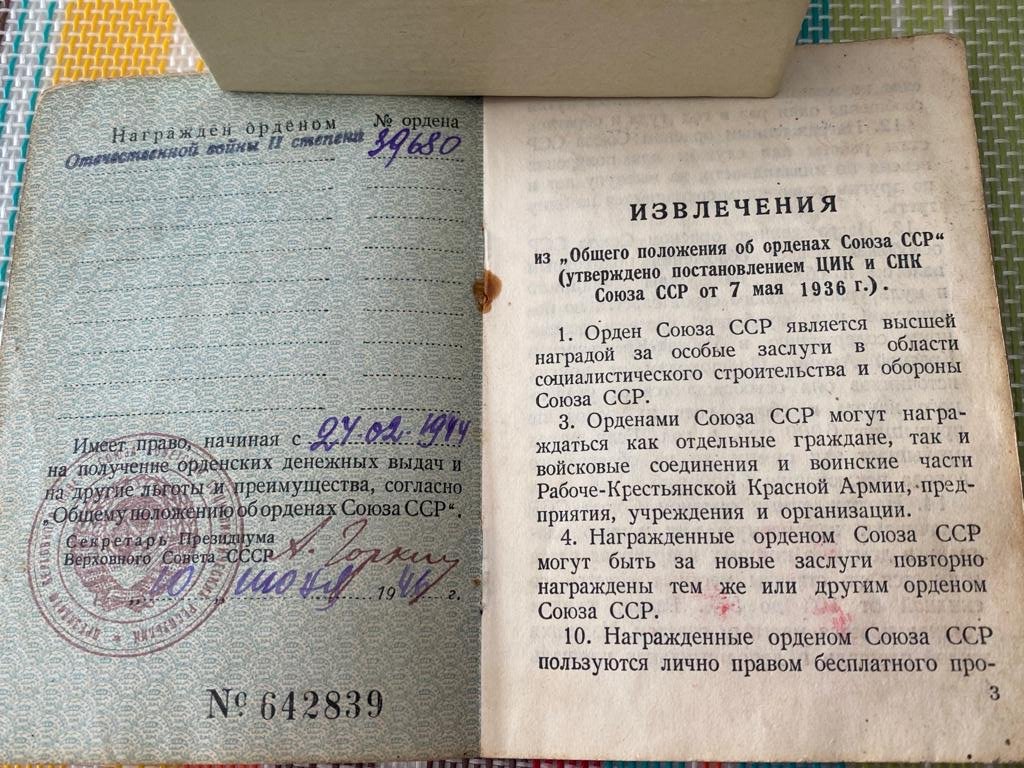 Награжден орденом
№ ордена
Отечественной войны II степени
39680
Имеет право, начиная с 27-02-1944
на получение орденских денежных выдач и
на другие льготы и преимущества, согласно
„Общему положению об орденах Союза ССР“.
Секретарь Президиума
Верховного Совета СССР
А. Горкин
„10“ июля 1946 г.
№ 642839
ИЗВЛЕЧЕНИЯ
из „Общего положения об орденах Союза ССР“
(утверждено постановлением ЦИК и СНК
Союза ССР от 7 мая 1936 г.).
1. Орден Союза ССР является высшей
наградой за особые заслуги в области
социалистического строительства и обороны
Союза ССР.
3. Орденами Союза ССР могут награ-
ждаться как отдельные граждане, так и
войсковые соединения и воинские части
Рабоче-Крестьянской Красной Армии, пред-
приятия, учреждения и организации.
4. Награжденные орденом Союза ССР
могут быть за новые заслуги повторно
награждены тем же или другим орденом
Союза ССР.
10. Награжденные орденом Союза ССР
пользуются лично правом бесплатного про-
3